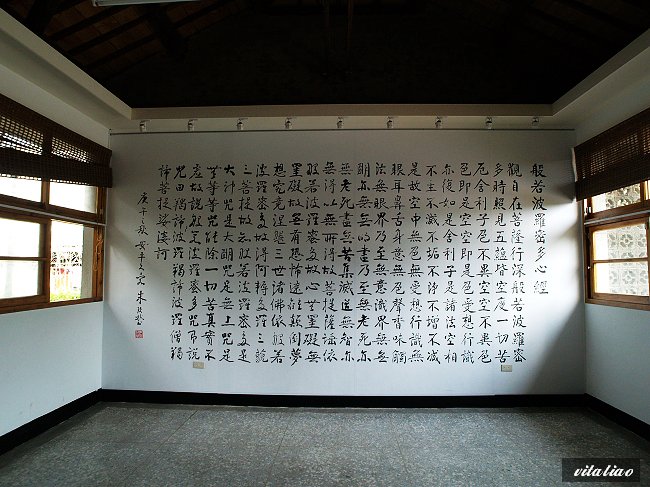 般若波羅密多心經
觀自在菩薩行深般若波羅密
多時照見五蘊皆空度一切苦
厄舍利子色不異空空不異色
色即是空空即是色受想行識
亦復如是舍利子是諸法空相
不生不滅不垢不淨不增不減
是故空中無色無受想行識無
眼耳鼻舌身意無色聲香味觸
法無眼界乃至無意識界無無
明亦無無明盡乃至無老死亦
無老死盡無苦集滅道無智亦
無得以無所得故菩提薩埵依
般若波羅密多故心無罣礙無
罣礙故無有恐怖遠離顛倒夢
想究竟涅槃三世諸佛依般若
波羅密多故得阿耨多羅三藐
三菩提故知般若波羅密多是
大神咒是大明咒是無上咒是
無等等咒能除一切苦真實不
虛故說般若波羅密多咒即說
咒曰羯諦波羅羯諦波羅僧羯
諦菩提娑婆訶
庚午之秋 朱玖瑩
vitaliao